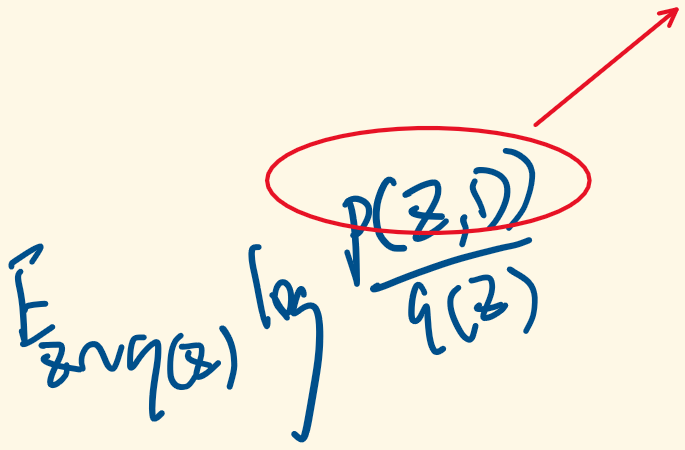 E_{z∼q(z)} log p(z,D)/q(z)